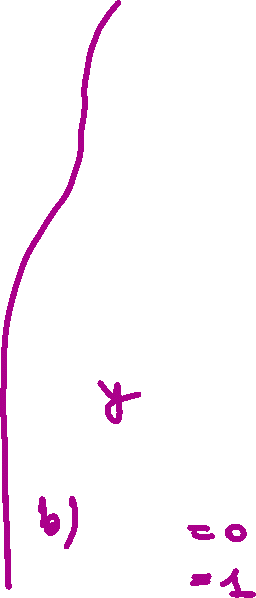 y
b)
= 0
= 1